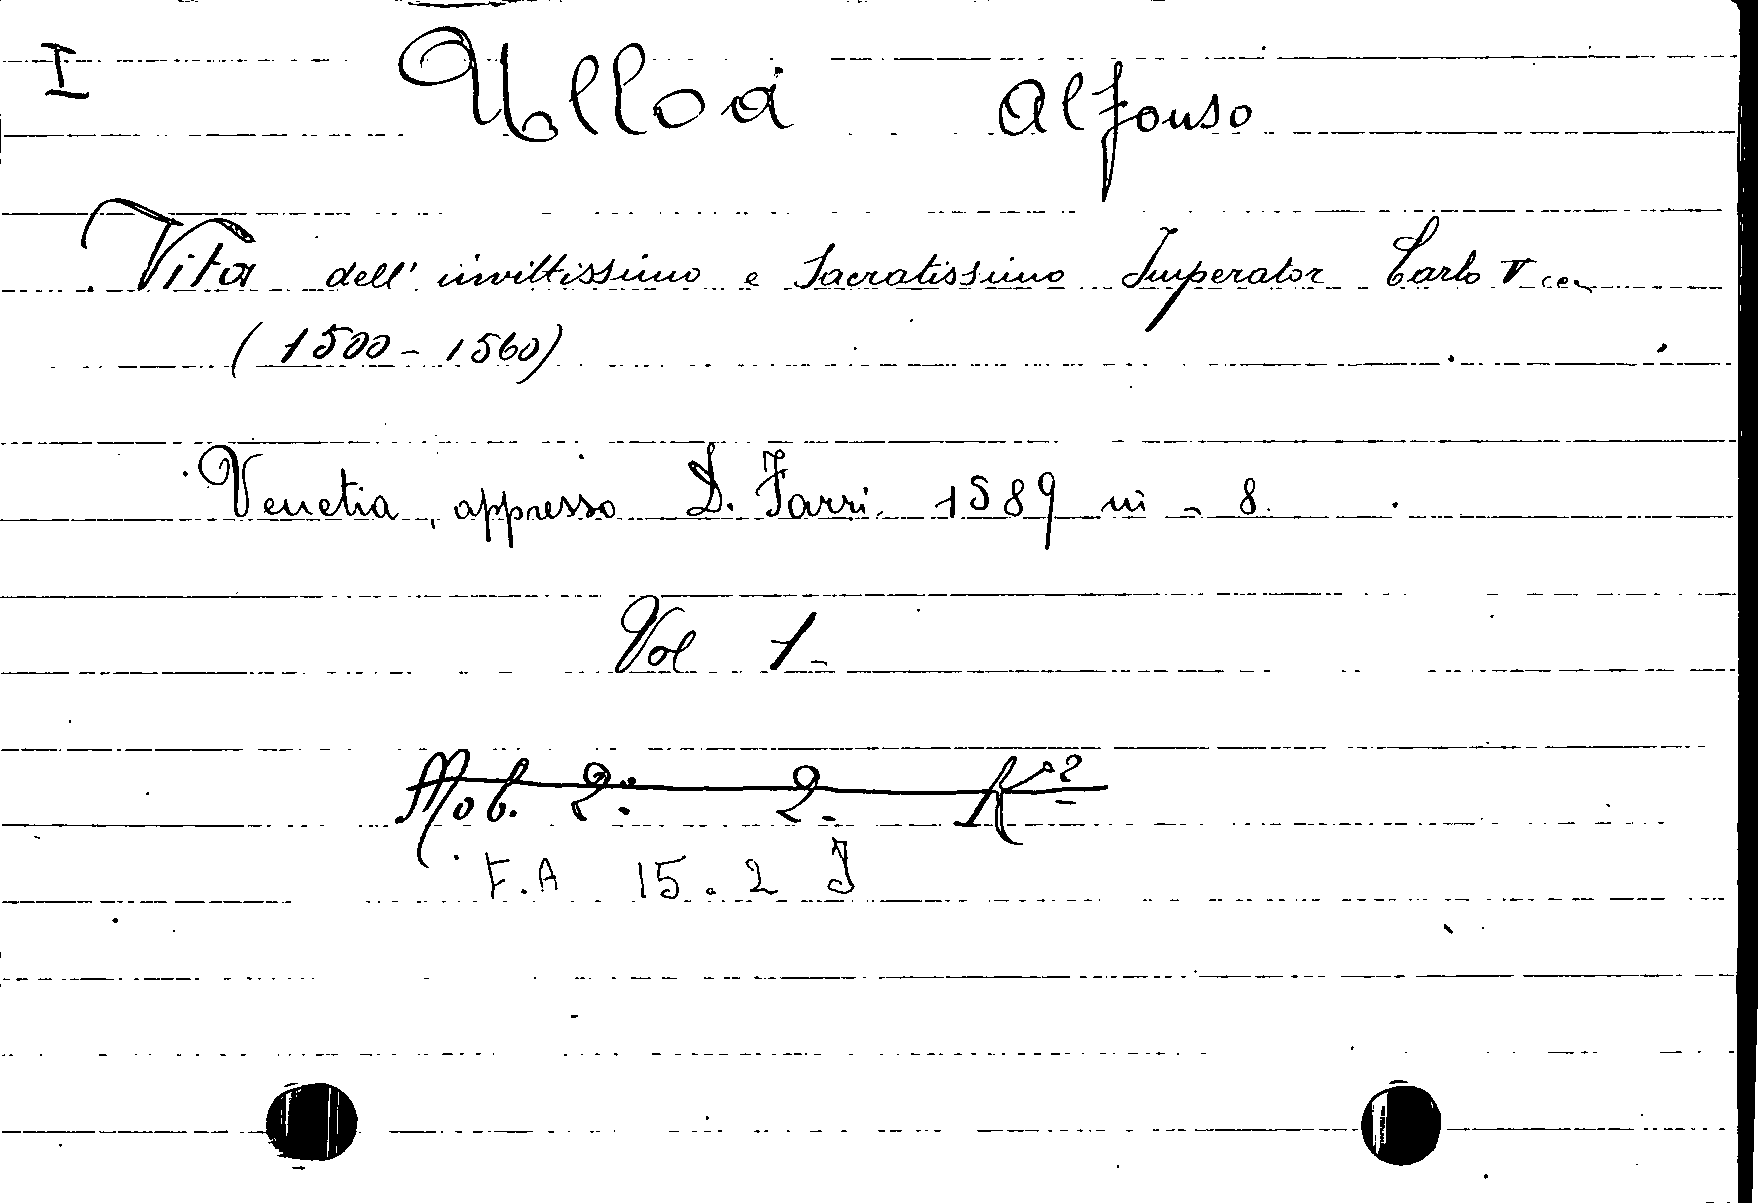 I Ulloa Alfonso
Vita dell' invittissimo e Sacratissimo Imperator Carlo V
(1500-1560)
Venetia, appresso D. Farri. 1589 in - 8.
Vol 1-
Mob. 2: 2.
F.A 15.2 J